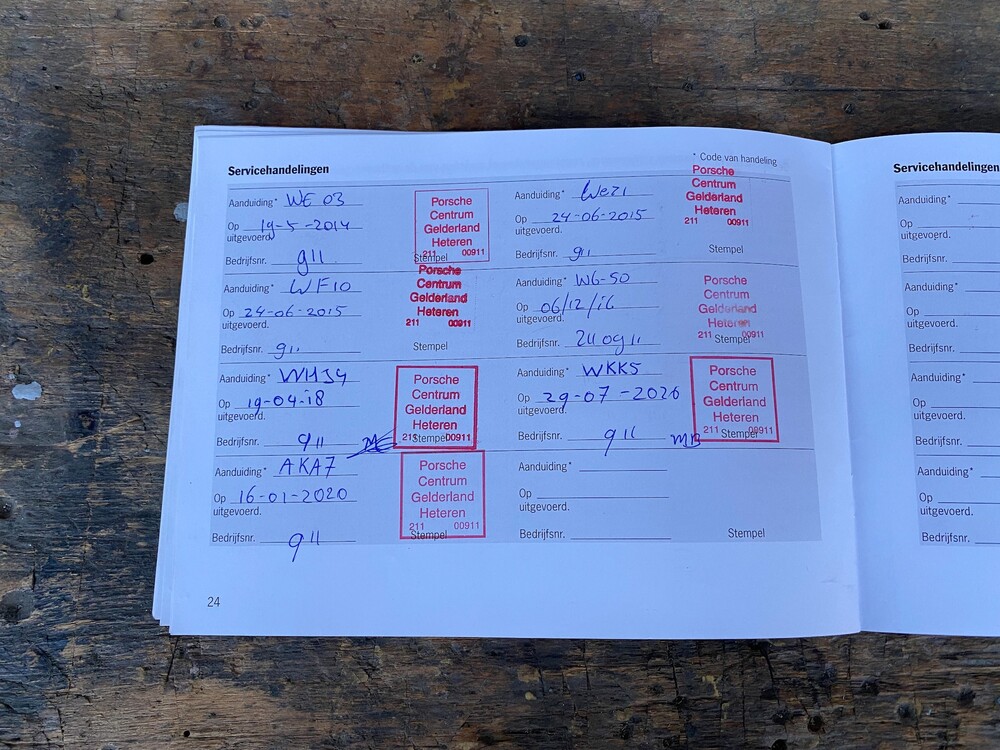 Servicehandelingen
* Code van handeling
Aanduiding* WE 03
Op 19-5-2014
uitgevoerd.
Bedrijfsnr. 911
Stempel
Porsche
Centrum
Gelderland
Heteren
211 00911
Aanduiding* WeZ1
Op 24-06-2015
uitgevoerd.
Bedrijfsnr. 911
Stempel
Porsche
Centrum
Gelderland
Heteren
211 00911
Aanduiding* WF10
Op 24-06-2015
uitgevoerd.
Bedrijfsnr. 911
Stempel
Porsche
Centrum
Gelderland
Heteren
211 00911
Aanduiding* WG-50
Op 06/12/16
uitgevoerd.
Bedrijfsnr.
Stempel
Porsche
Centrum
Gelderland
Heteren
211 00911
Aanduiding* WH34
Op 19-04-18
uitgevoerd.
Bedrijfsnr. 911
Stempel
Porsche
Centrum
Gelderland
Heteren
211 00911
Aanduiding* WKK5
Op 29-07-2020
uitgevoerd.
Bedrijfsnr. 911 MB
Stempel
Porsche
Centrum
Gelderland
Heteren
211 00911
Aanduiding* AKA7
Op 16-01-2020
uitgevoerd.
Bedrijfsnr. 911
Stempel
Porsche
Centrum
Gelderland
Heteren
211 00911
Aanduiding*
Op
uitgevoerd.
Bedrijfsnr.
Stempel
24
Servicehandelingen
Aanduiding*
Op
uitgevoerd.
Bedrijfsnr.
Aanduiding*
Op
uitgevoerd.
Bedrijfsnr.
Aanduiding*
Op
uitgevoerd.
Bedrijfsnr.
Aanduiding*
Op
uitgevoerd.
Bedrijfsnr.